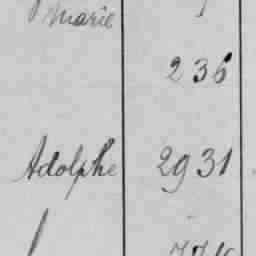 Marie
236
Adolphe 2931